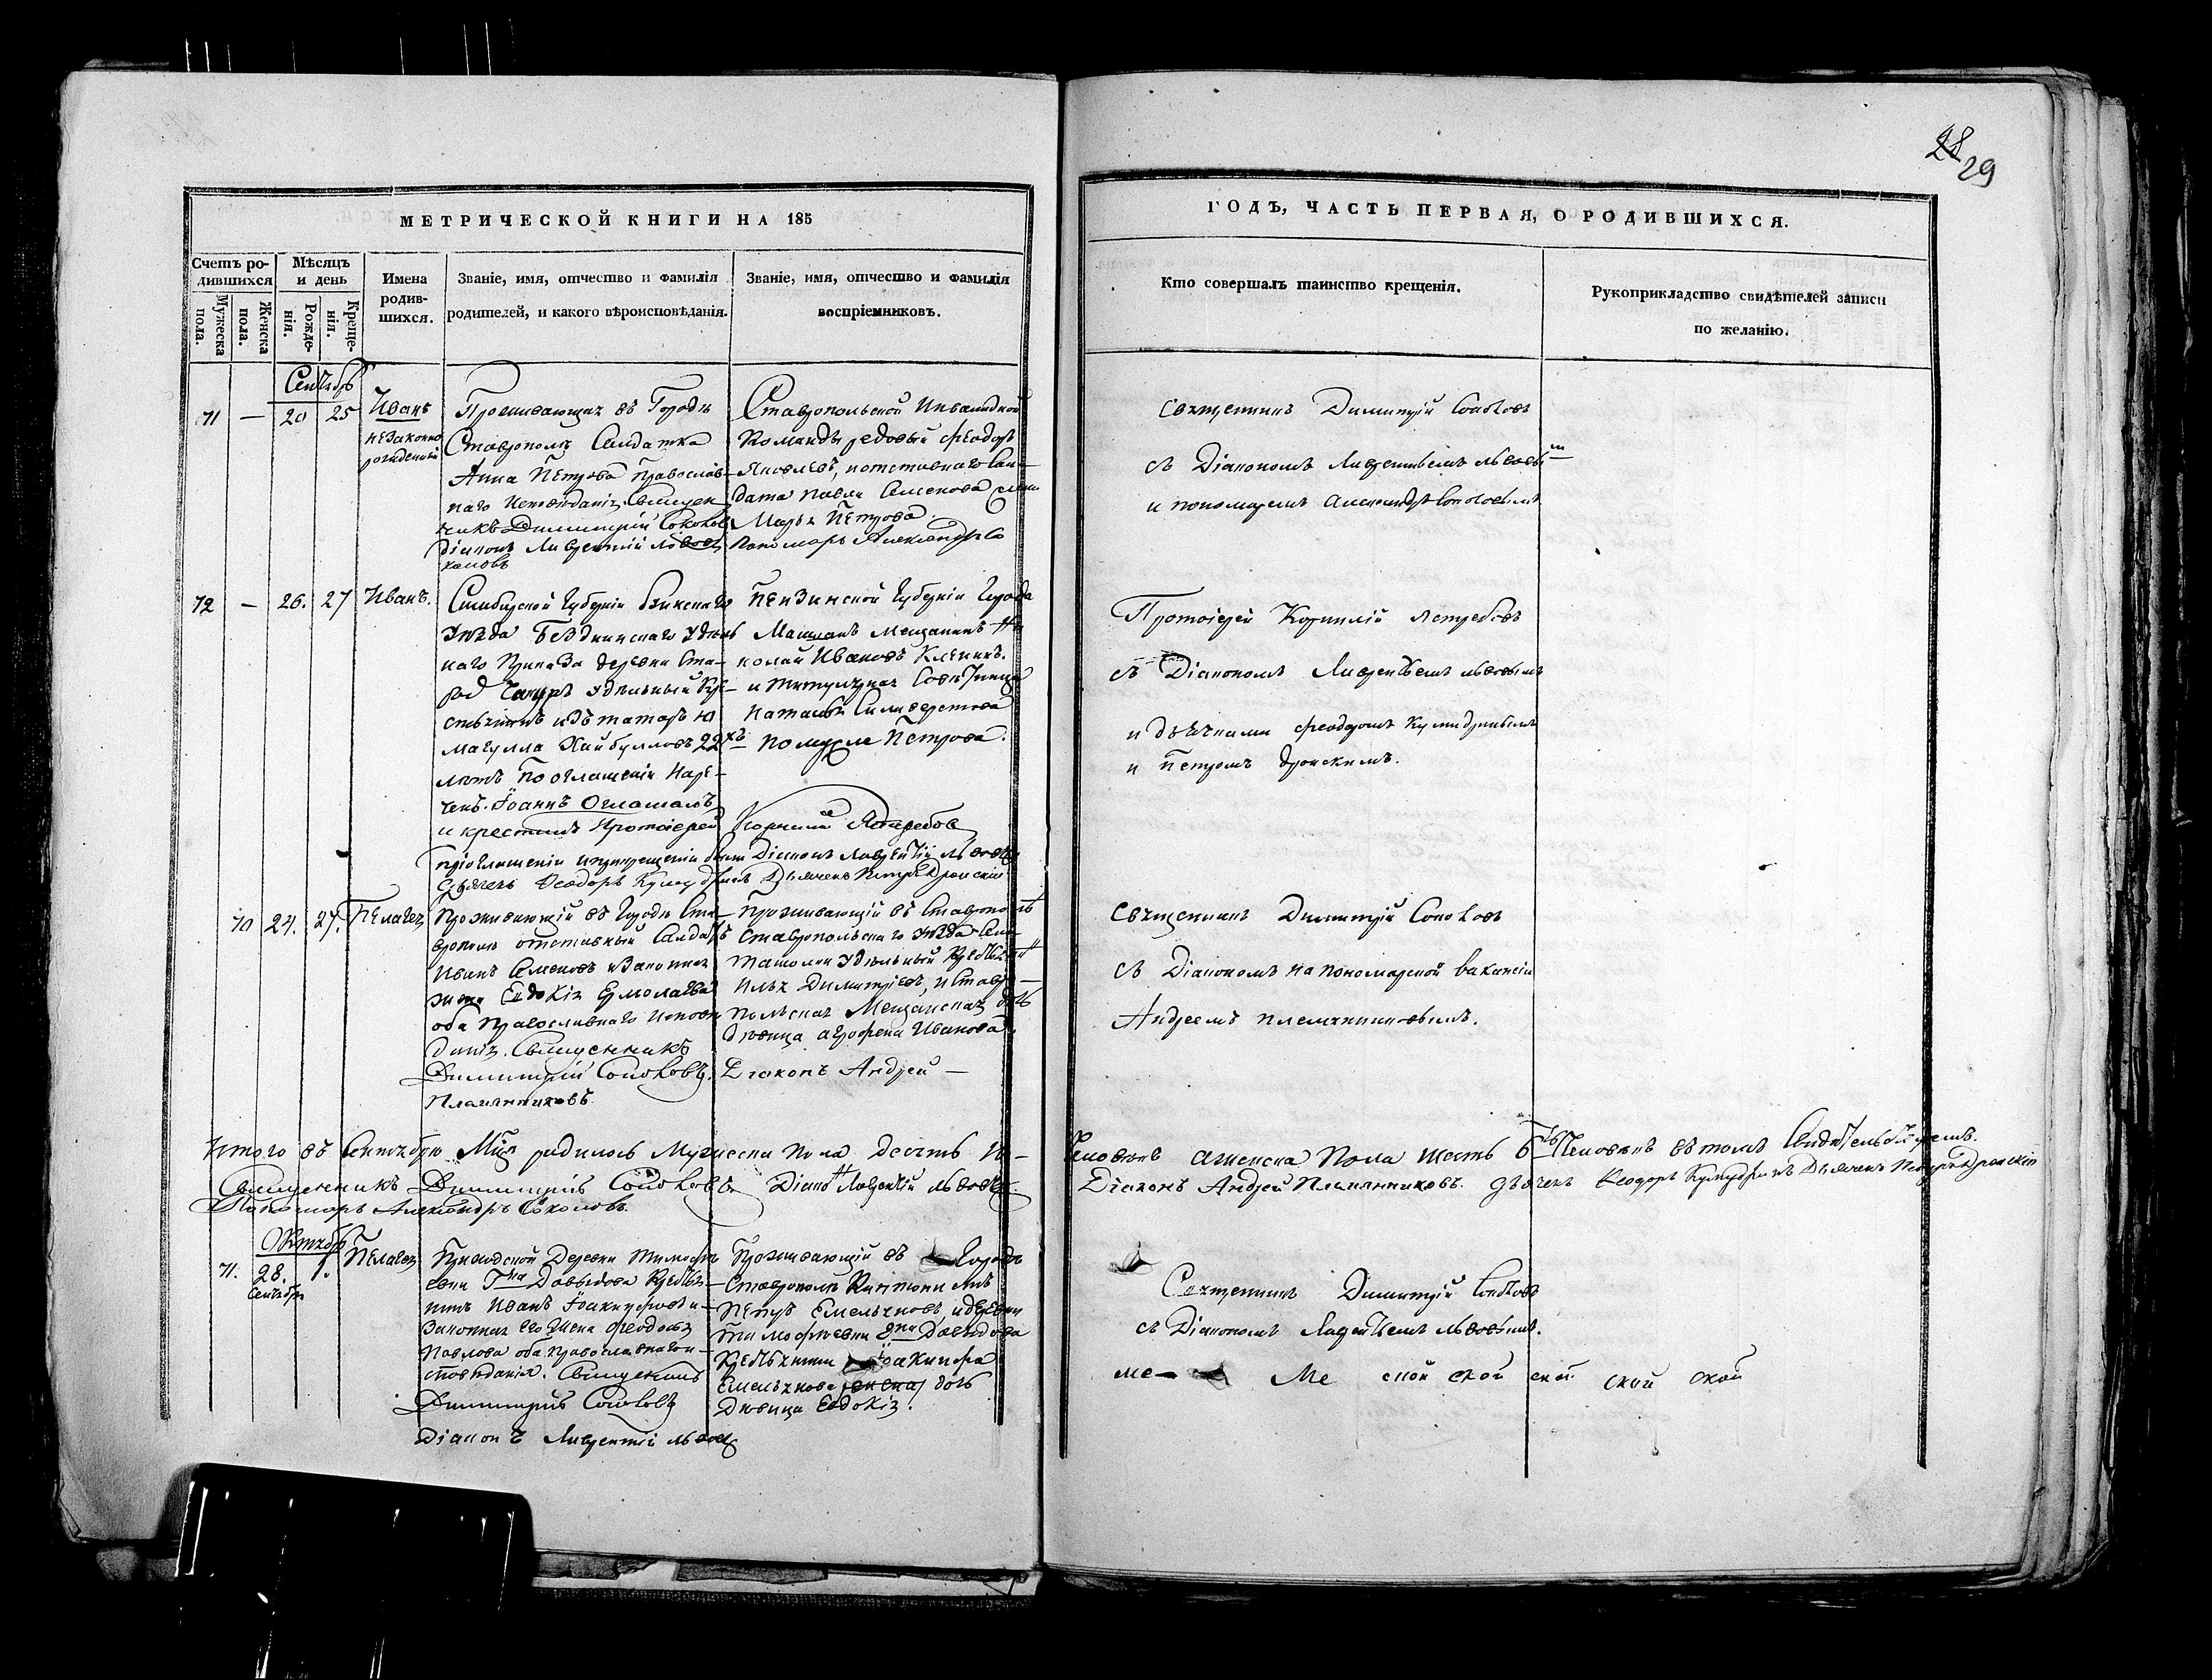 28 29
МЕТРИЧЕСКОЙ КНИГИ НА 185
ГОДЪ, ЧАСТЬ ПЕРВАЯ, О РОДИВШИХСЯ.
Счетъ ро-
дившихся
Мужеска
пола.
Женска
пола.
Мѣсяцъ
и день
Рожде-
нія.
Креще-
нія.
Имена
родив-
шихся.
Званіе, имя, отчество и фамилія
родителей, и какого вѣроисповѣданія.
Званіе, имя, отчество и фамилія
воспріемниковъ.
Кто совершалъ таинство крещенія.
Рукоприкладство свидѣтелей записи
по желанію.
Сентябрь
71 — 20 25
Иванъ
незаконно
рожденный
Проживающая въ Городѣ
Ставрополѣ Салдатка
Анна Петрова Православ-
наго Исповѣданія Священ
никъ Димитрій Соколовъ
Діаконъ Лаврентій Львовъ
Ставропольской Инвалидной
Команды редовый Феодоръ
Яковлевъ, и отставнаго Сал-
дата Павла Семенова жена
Марья Петрова
Пономарь Александръ Со
коловъ
Священникъ Димитрій Соколовъ
съ Діакономъ Лаврентьемъ Львовымъ
и пономаремъ Александръ Соколовымъ
72 — 26. 27
Иванъ.
Симбирской Губерніи Буинскаго
Уѣзда Бездненскаго Удѣль
наго Приказа деревни Ста-
рой удѣльный Кре-
стьянинъ изъ татаръ Ю
магулла Хайбулловъ 22хъ
лѣтъ По оглашеніи Наре-
ченъ. Іоаннъ Оглашалъ
и крестилъ Протоіерей
Пензинской Губерніи Города
Мещанинъ Ни
колай Ивановъ Клѣнинъ.
и Титулярная Совѣтница
Наталья Силиверстова
по мужѣ Петрова.
Корнилій Ястребовъ
При оглашеніи и при крещеніи были Діаконъ Лаврентій Львовъ
Дьячекъ Феодоръ Кумидринъ Дьячекъ Петръ Дронскій
Протоіерей Корнилій Ястребовъ
съ Діакономъ Лаврентьемъ Львовымъ
и дьячками Феодоромъ Кумидринымъ
и Петромъ Дронскимъ.
70 24. 27.
Пелагея
Проживающій въ Городѣ Ста-
врополѣ отставный Салдатъ
Иванъ Семеновъ и Законная
жена Евдокія Ермолаева
оба Православнаго Исповѣ
данія. Священникъ
Димитрій Соколовъ.
Племянниковъ
Проживающій въ Ставрополѣ
Ставропольскаго Уѣзда
удѣльный Крестьянинъ
Илья Димитріевъ, и Ставро-
польская Мещанская дочь
дѣвица Агрофена Иванова
Діаконъ Андрей —
Священникъ Димитрій Соколовъ
съ Діакономъ на пономарской вакансіи
Андреемъ Племянниковымъ.
Итого въ Сентябрѣ Мцѣ родилось Мужеска пола десять че-
ловѣкъ а женска Пола шесть 6ть Человѣкъ въ томъ Свидѣтельствуемъ.
Священникъ Димитрій Соколовъ Діаконъ Лаврентій Львовъ
Діаконъ Андрей Племянниковъ. Дьячекъ Феодоръ Кумидринъ Дьячекъ Петръ Дронскій
Пономарь Александръ Соколовъ.
Октябрь
71. 28. 1.
Сентября
Пелагея
Приходской Деревни Тимофѣ
евки Гна Давыдова Крестья-
нинъ Иванъ Іоакинфовъ и
Законная его Жена Феодосья
Павлова оба православнаго и-
сповѣданія. Священникъ
Димитрій Соколовъ
Діаконъ Лаврентій Львовъ
Проживающій въ Городѣ
Ставрополѣ
Петръ Емельяновъ, и деревни
Тимофѣевки Гна Давыдова
Крестьянина Іоакинфа
Емельянова жена дочь
Дѣвица Евдокія.
Священникъ Димитрій Соколовъ
съ Діакономъ Лаврентьемъ Львовымъ.
ме- Ме ской ской ской ской ской